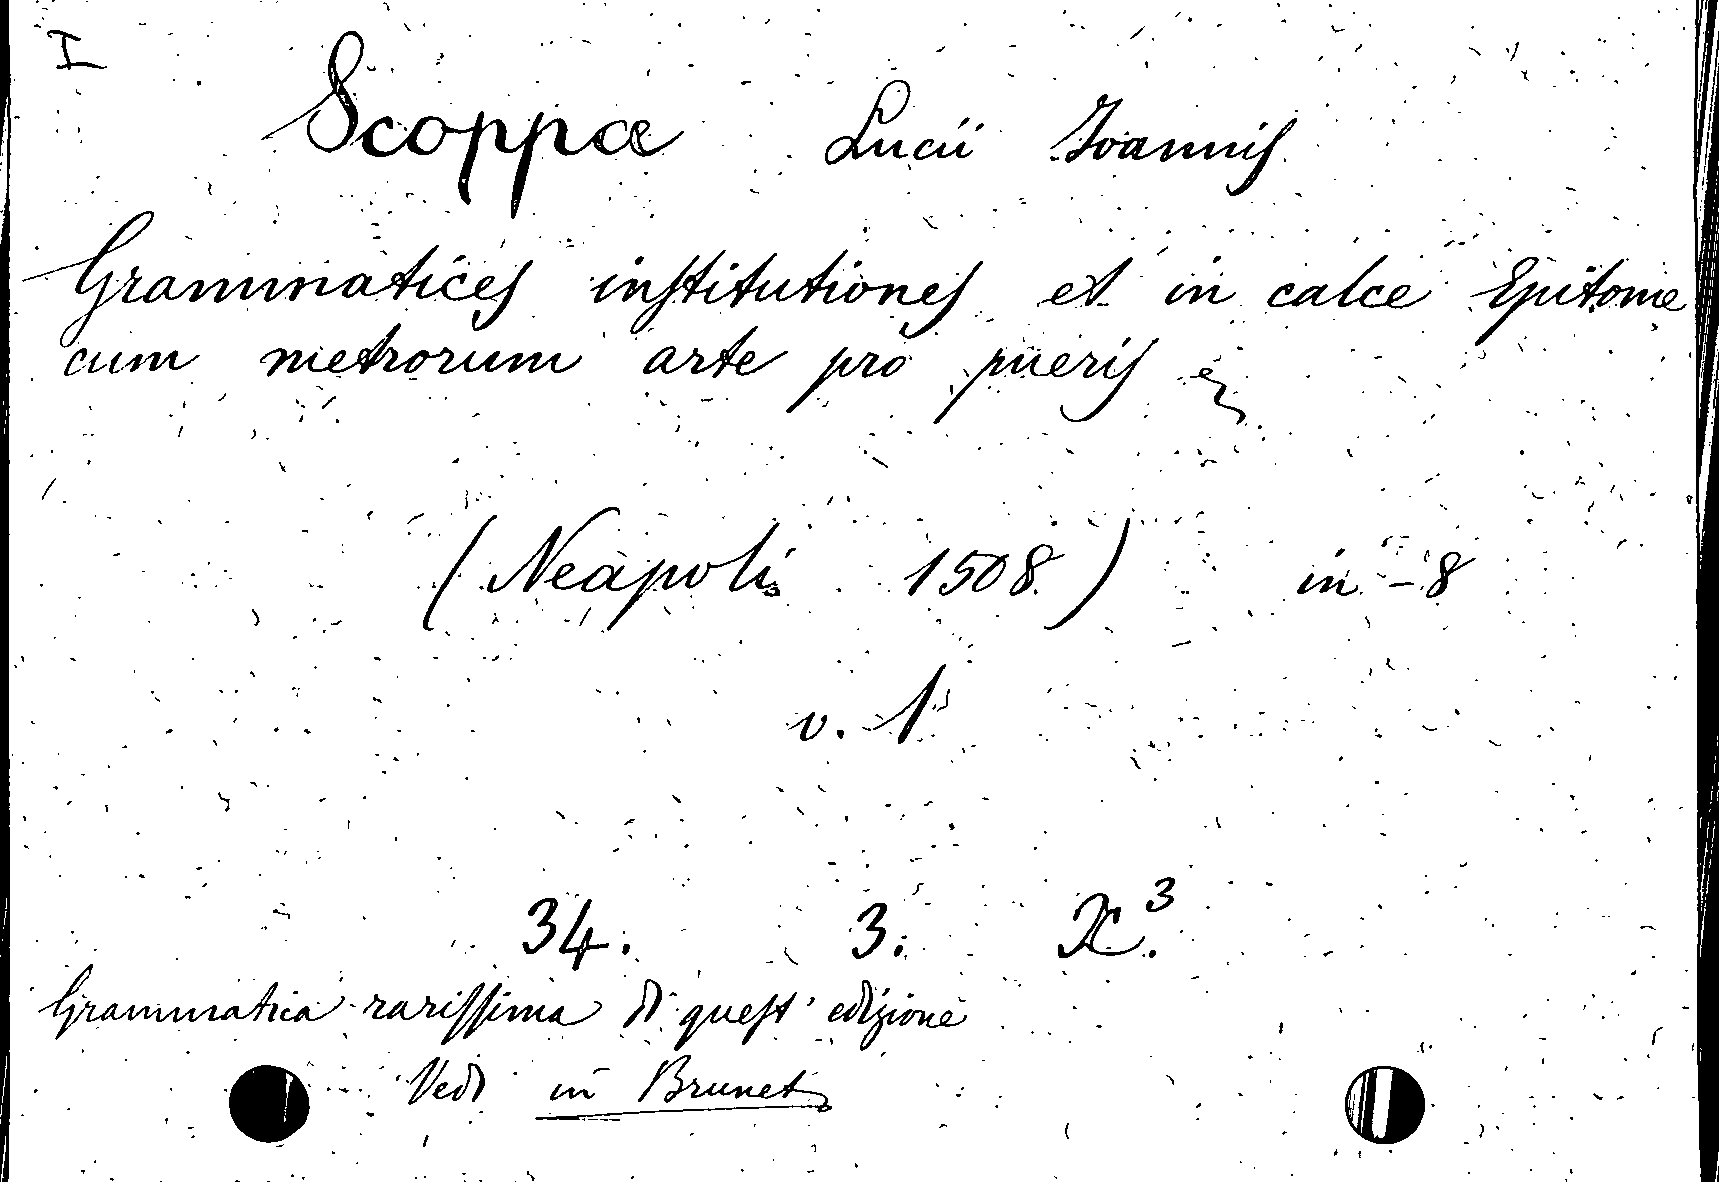 I
Scoppæ Lucii Ioannis
Grammatices institutiones et in calce Epitome
cum metrorum arte pro pueris
(Neapoli 1508) in-8
v. 1
34. 3. X.³
Grammatica rarissima di quest' edizione
Vedi in Brunet